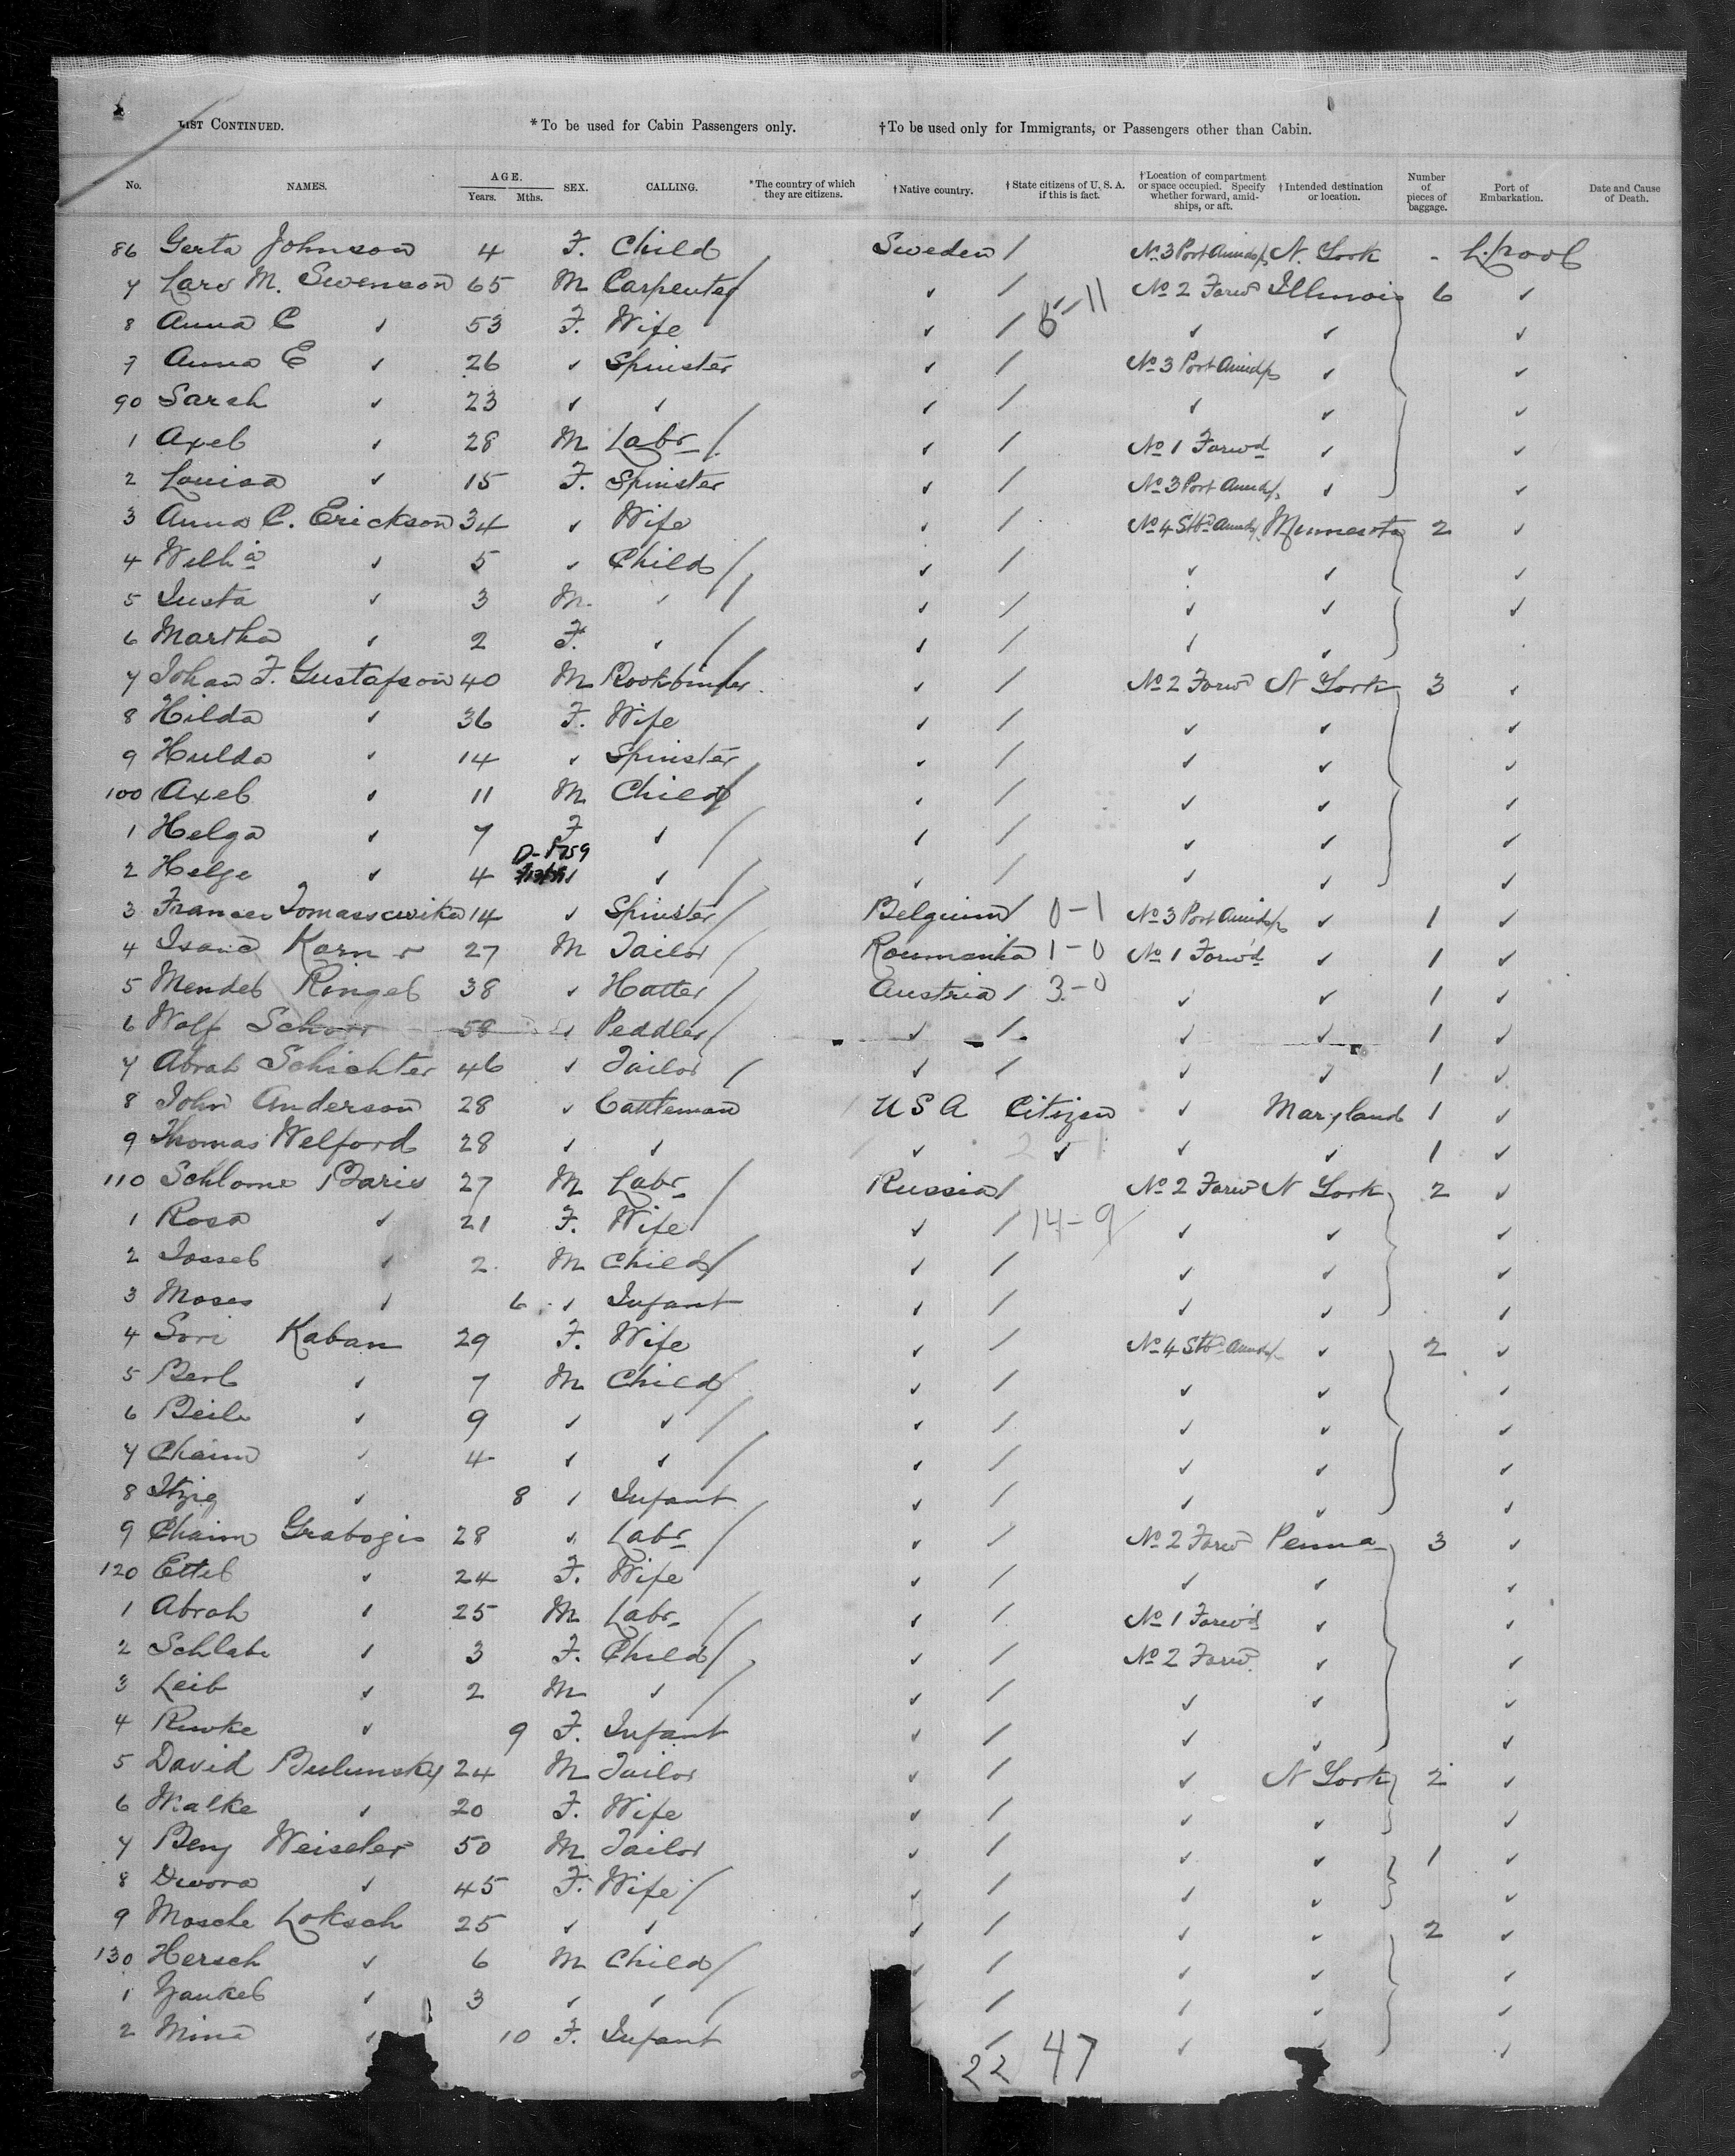 LIST CONTINUED. * To be used for Cabin Passengers only. † To be used only for Immigrants, or Passengers other than Cabin.
No. NAMES. AGE. Years. Mths. SEX. CALLING. * The country of which they are citizens. † Native country. † State citizens of U. S. A. if this is fact. † Location of compartment or space occupied. Specify whether forward, amidships, or aft. † Intended destination or location. Number of pieces of baggage. Port of Embarkation. Date and Cause of Death.
86 Gerta Johnson 4 F. Child Sweden / No 3 Port Amidsp N. York - L.pool
7 Lars M. Swenson 65 M Carpenter / ✓ / No 2 Forwd Illinois 6 ✓
8 Anna C ✓ 53 F. Wife ✓ / ✓ ✓ ✓
9 Anna E ✓ 26 ✓ Spinster ✓ / No 3 Port Amidsp ✓ ✓
90 Sarah ✓ 23 ✓ ✓ ✓ / ✓ ✓ ✓
1 Axel ✓ 28 M Labr / ✓ / No 1 Forwd ✓ ✓
2 Louisa ✓ 15 F. Spinster ✓ / No 3 Port Amidsp ✓ ✓
3 Anna C. Erickson 34 ✓ Wife ✓ / No 4 Stbd Amidsp Minnesota 2 ✓
4 Welha ✓ 5 ✓ Child / ✓ / ✓ ✓ ✓
5 Gusta ✓ 3 M. ✓ / ✓ / ✓ ✓ ✓
6 Martha ✓ 2 F. ✓ / ✓ / ✓ ✓
7 Johan F. Gustafson 40 M Bookbinder ✓ / No 2 Forwd N York 3 ✓
8 Hilda ✓ 36 F. Wife ✓ / ✓ ✓ ✓
9 Hulda ✓ 14 ✓ Spinster ✓ / ✓ ✓ ✓
100 Axel ✓ 11 M Child / ✓ / ✓ ✓ ✓
1 Helga ✓ 7 F ✓ / ✓ / ✓ ✓ ✓
2 Helge ✓ 4 ✓ ✓ / ✓ / ✓ ✓ ✓
3 14 ✓ Spinster / Belgium / 0-1 No 3 Port Amidsp ✓ 1 ✓
4 27 M Tailor / Roumania 1-0 No 1 Forwd ✓ 1 ✓
5 Mendel Ringel 38 ✓ Hatter / Austria / 3-0 ✓ ✓ 1 ✓
6 Wolf Schorr 58 ✓ Peddler / ✓ / ✓ ✓ 1 ✓
7 Abrah Schichter 46 ✓ Tailor / ✓ / ✓ ✓ 1 ✓
8 John Anderson 28 ✓ Cattleman U S A Citizen ✓ Maryland 1 ✓
9 Thomas Welford 28 ✓ ✓ ✓ ✓ ✓ ✓ 1 ✓
110 Schlome Baris 27 M Labr / Russia / No 2 Forwd N York 2 ✓
1 Rosa ✓ 21 F. Wife / ✓ / 14-9 ✓ ✓ ✓
2 Jossel ✓ 2 M Child / ✓ / ✓ ✓ ✓
3 Moses ✓ 6 ✓ Infant ✓ / ✓ ✓ ✓
4 Sori Kaban 29 F. Wife ✓ / No 4 Stbd Amidsp ✓ 2 ✓
5 Berl ✓ 7 M Child / ✓ / ✓ ✓ ✓
6 Beile ✓ 9 ✓ ✓ / ✓ / ✓ ✓ ✓
7 Chaim ✓ 4 ✓ ✓ / ✓ / ✓ ✓ ✓
8 Itzig ✓ 8 ✓ Infant ✓ / ✓ ✓ ✓
9 Chaim Grabogis 28 ✓ Labr / ✓ / No 2 Forwd Penna 3 ✓
120 Ettel ✓ 24 F. Wife ✓ / ✓ ✓ ✓
1 Abrah ✓ 25 M Labr / ✓ / No 1 Forwd ✓ ✓
2 Schlabe ✓ 3 F. Child / ✓ / No 2 Forwd ✓ ✓
3 Leib ✓ 2 M ✓ / ✓ / ✓ ✓ ✓
4 Riwke ✓ 9 F. Infant ✓ / ✓ ✓ ✓
5 David 24 M Tailor ✓ / ✓ N York 2 ✓
6 Malke ✓ 20 F. Wife ✓ / ✓ ✓ ✓
7 Benj Weiseler 50 M Tailor ✓ / ✓ ✓ 1 ✓
8 Dwora ✓ 45 F. Wife / ✓ / ✓ ✓ ✓
9 Mosche Loksch 25 ✓ ✓ ✓ / ✓ ✓ 2 ✓
130 Hersch ✓ 6 M Child / / ✓ ✓ ✓
1 Yankel ✓ 3 ✓ ✓ / ✓ / ✓ ✓ ✓
2 Mina ✓ 10 F. Infant / ✓ ✓ ✓
22 47